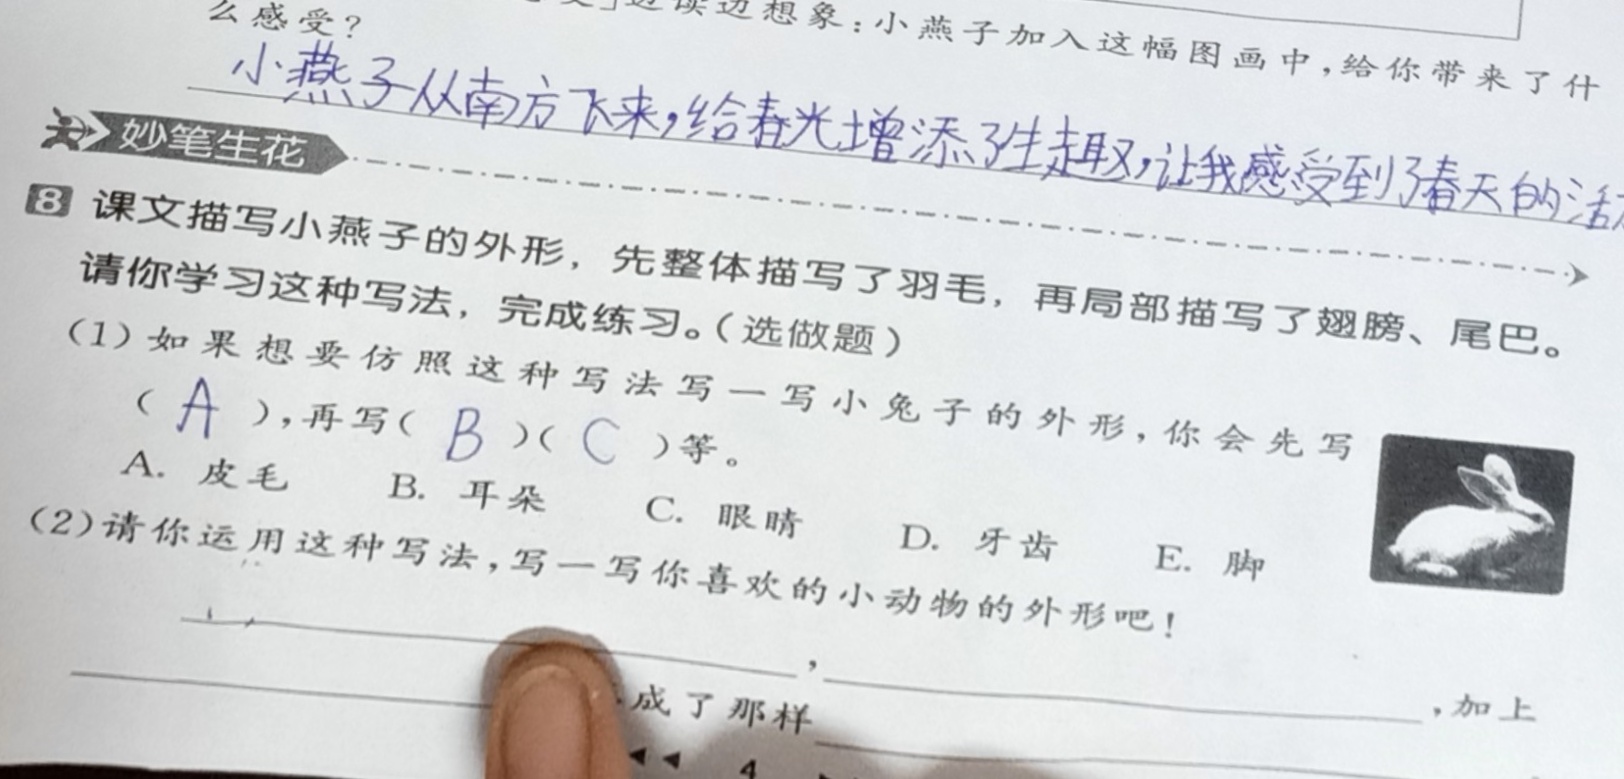 边读边想象：小燕子加入这幅图画中，给你带来了什
么感受？
小燕子从南方飞来，给春光增添了生趣，让我感受到了春天的活
妙笔生花
8 课文描写小燕子的外形，先整体描写了羽毛，再局部描写了翅膀、尾巴。
请你学习这种写法，完成练习。（选做题）
（1）如果想要仿照这种写法写一写小兔子的外形，你会先写
（ A ），再写（ B ）（ C ）等。
A. 皮毛 B. 耳朵 C. 眼睛 D. 牙齿 E. 脚
（2）请你运用这种写法，写一写你喜欢的小动物的外形吧！
， ，加上
成了那样
4